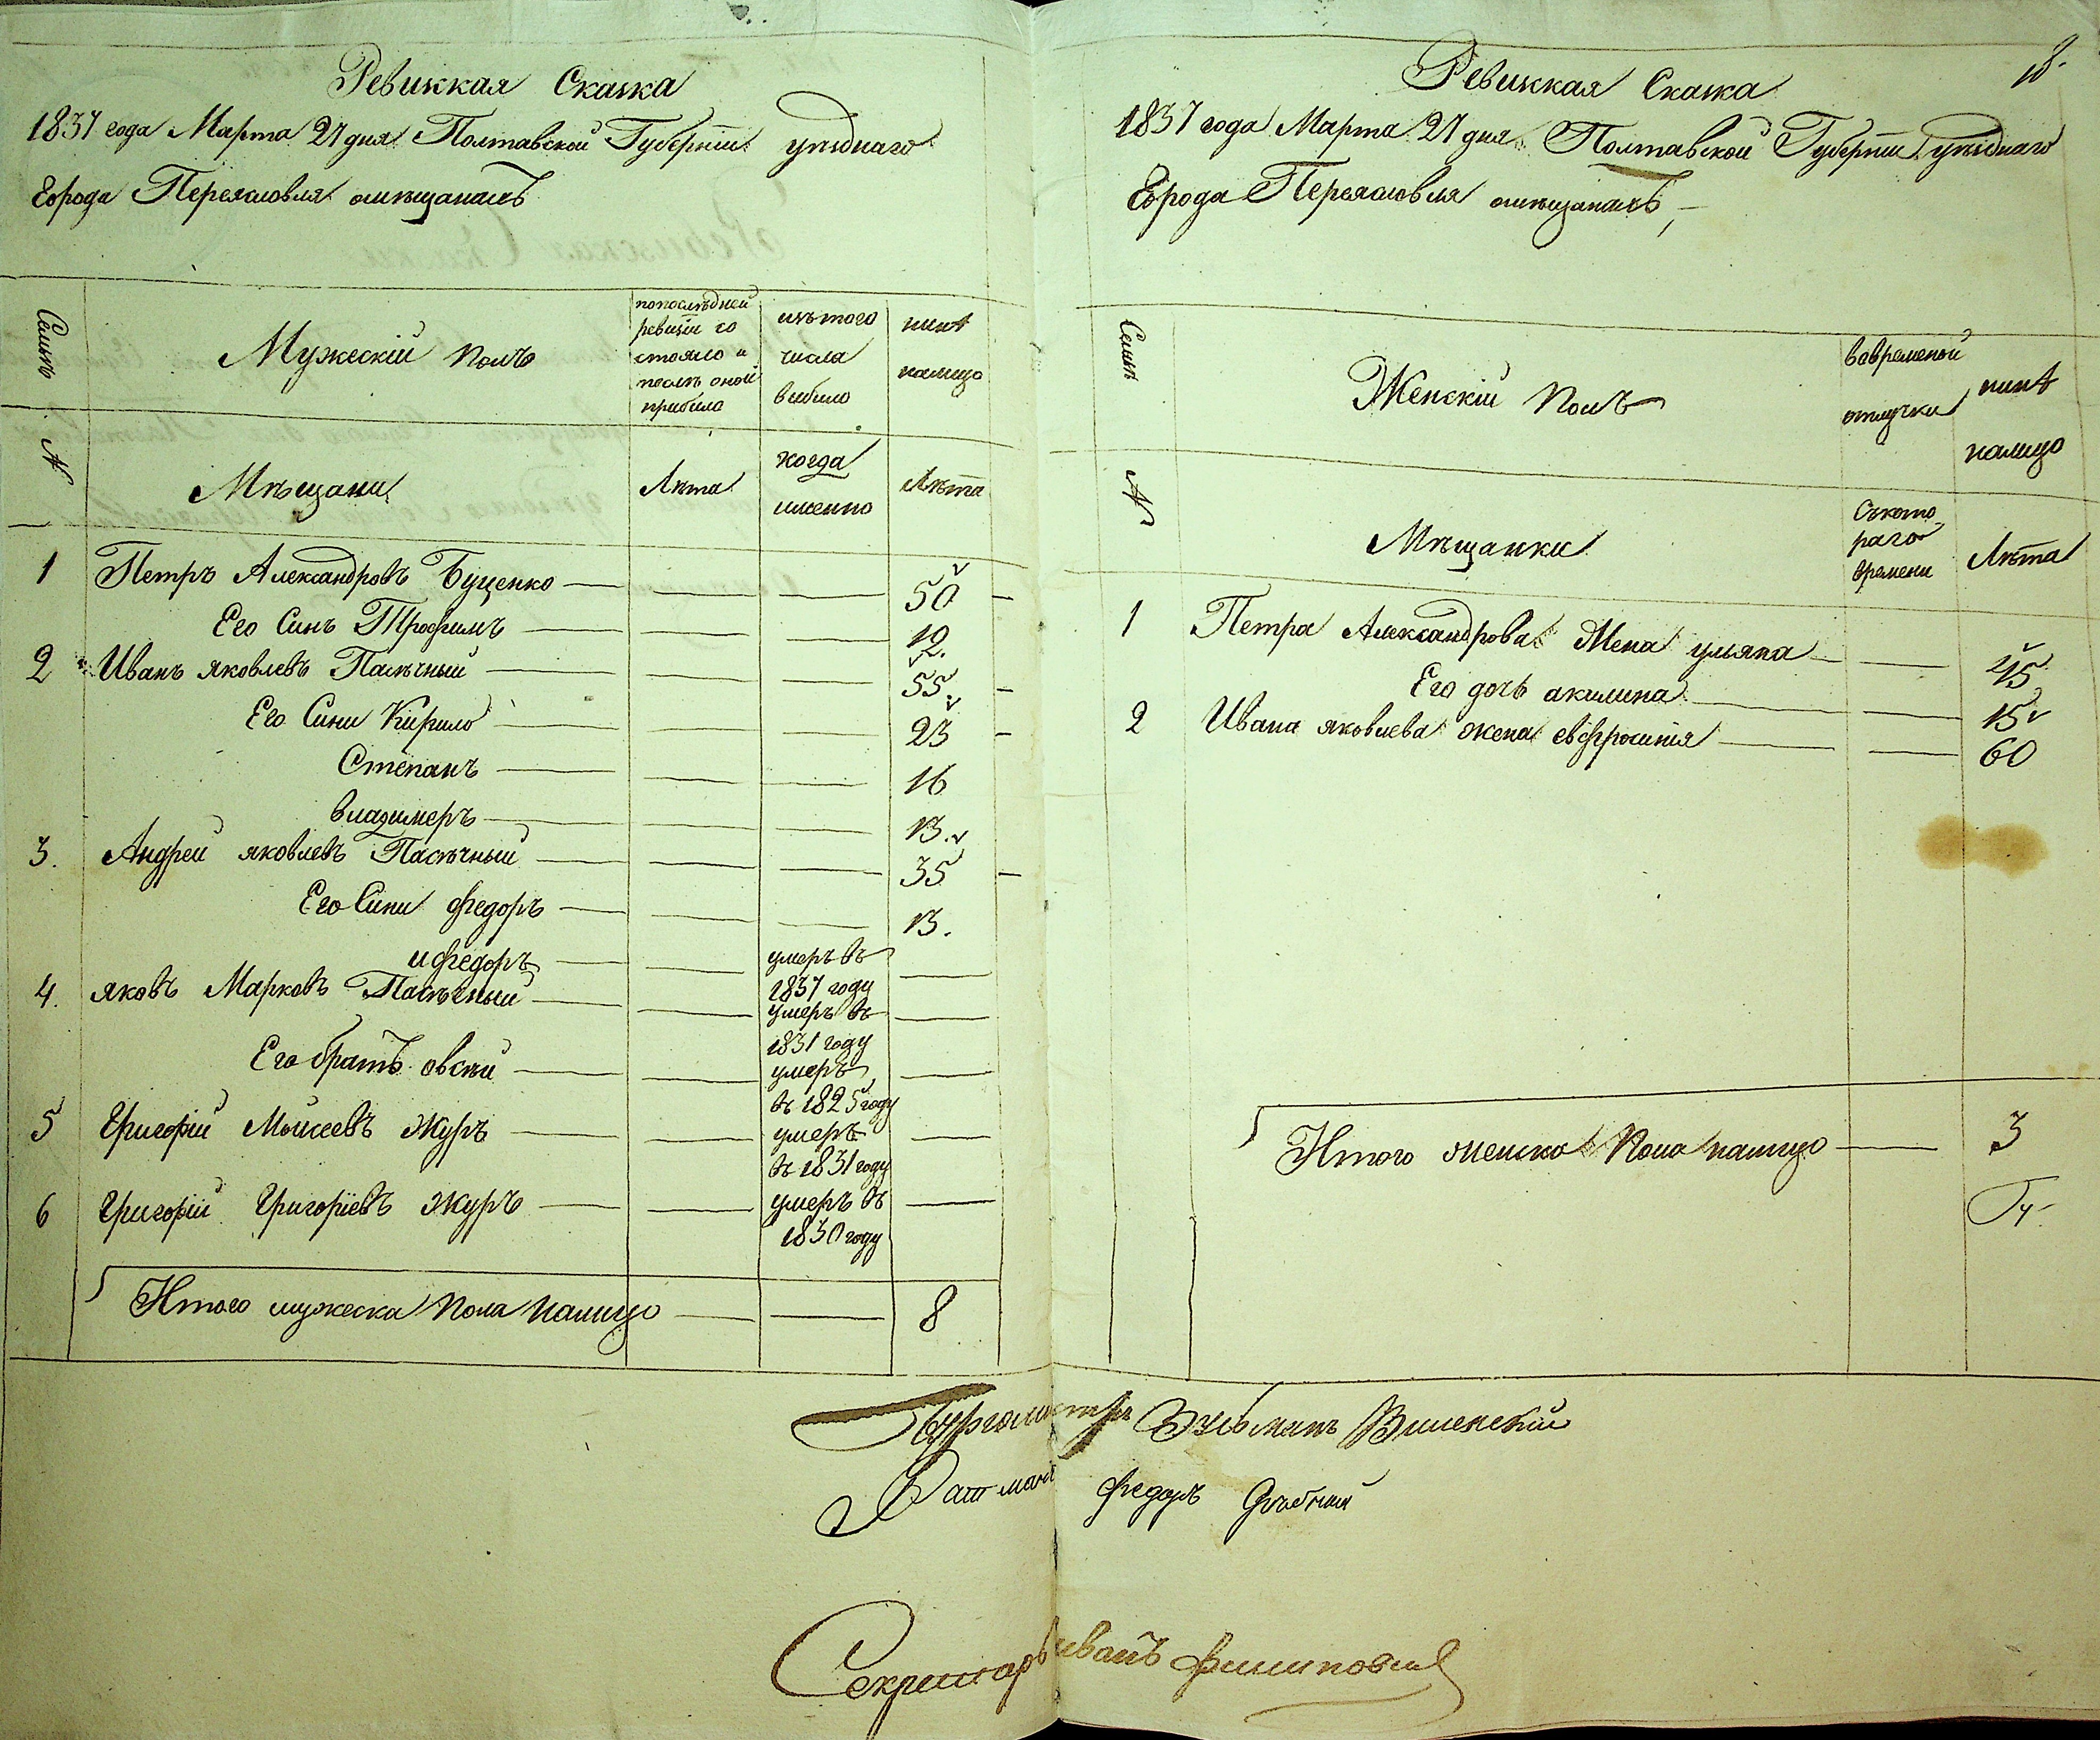 Ревизкая Сказка
1837 года Марта 27 дня Полтавской Губернии уезднаго
Города Переяславля омещанахъ
Семьи
Мужескій полъ
попоследней
ревизіи со
стояло и
после оной
прибило
изътого
числа
выбило
ныне
налицо
№
Мѣщани
Лѣта
когда
именно
Лѣта
1 Петръ Александровъ Буценко 50
Его Синъ Трофимъ 12.
2 Иванъ яковлевъ Пасѣчный 55.
Его Сини Кирило 23
Степанъ 16
владимеръ 13.
3. Андрей яковлевъ Пасѣчный 35
Его Сини федоръ 13.
ифедоръ умеръ въ
1837 году
4. яковъ Марковъ Пасѣчный умеръ въ
1831 году
Его братъ овсѣй умеръ
въ 1825 году
5 Григорій Мойсеевъ Журъ умеръ
въ 1831 году
6 Григорій Григоріевъ журъ умеръ въ
1830 году
Итого мужеска Пола налицо 8
Ревизкая Сказка
1837 года Марта 27 дня Полтавской Губерніи уѣзднаго
Города Переяславля омѣщанахъ,
Семьи
Женскій Полъ
вовременой
отлучки
нинѣ
налицо
№
Мѣщанки
Съкото
раго
времени
Лѣта
1 Петра Александрова Жена ульяна 45
Его дочь акилина 15
2 Ивана яковлева жена евфросинія 60
Итого женска Пола налицо 3
Бургомистръ Виленскій
Ратманъ федоръ
Секретарь иванъ